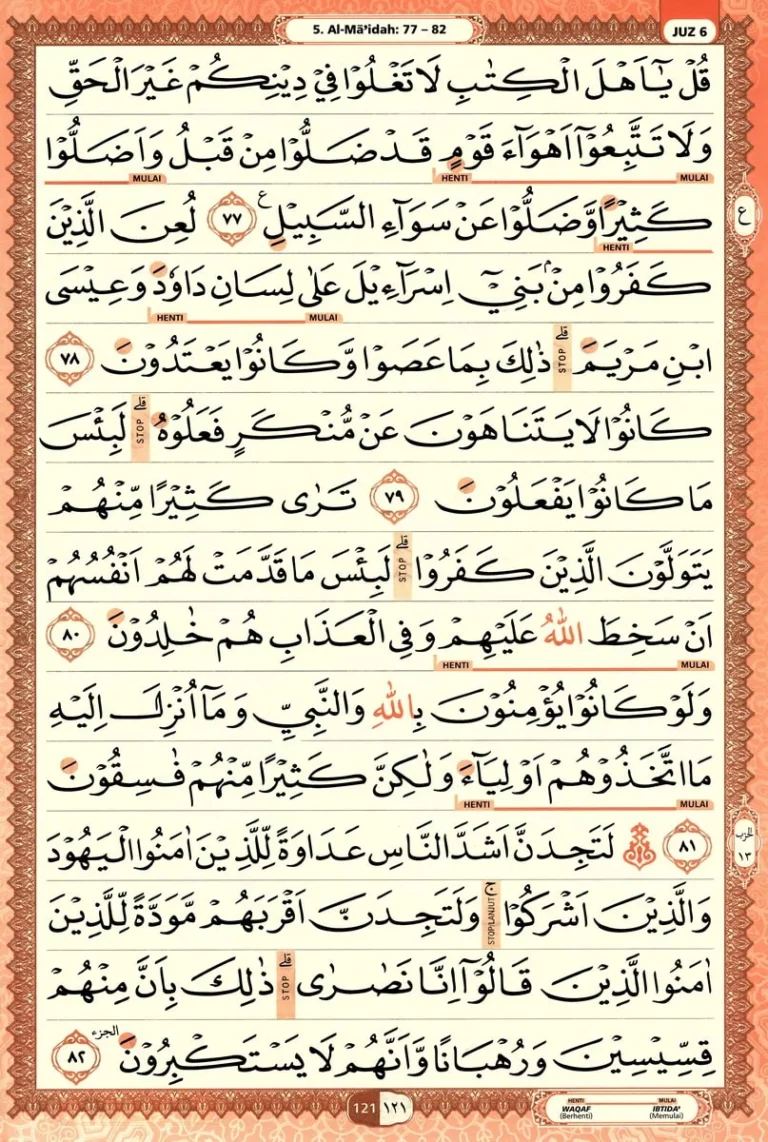 5. Al-Mā'idah: 77 – 82
JUZ 6
قُلْ يٰٓاَهْلَ الْكِتٰبِ لَا تَغْلُوْا فِيْ دِيْنِكُمْ غَيْرَ الْحَقِّ
وَلَا تَتَّبِعُوْٓا اَهْوَاۤءَ قَوْمٍ قَدْ ضَلُّوْا مِنْ قَبْلُ وَاَضَلُّوْا
MULAI HENTI MULAI
كَثِيْرًا وَّضَلُّوْا عَنْ سَوَاۤءِ السَّبِيْلِ ࣖ ٧٧ لُعِنَ الَّذِيْنَ
ع
HENTI
كَفَرُوْا مِنْۢ بَنِيْٓ اِسْرَاۤءِيْلَ عَلٰى لِسَانِ دَاوٗدَ وَعِيْسَى
MULAI HENTI
ابْنِ مَرْيَمَ ۗ STOP ذٰلِكَ بِمَا عَصَوْا وَّكَانُوْا يَعْتَدُوْنَ ٧٨
كَانُوْا لَا يَتَنَاهَوْنَ عَنْ مُّنْكَرٍ فَعَلُوْهُ ۗ STOP لَبِئْسَ
مَا كَانُوْا يَفْعَلُوْنَ ٧٩ تَرٰى كَثِيْرًا مِّنْهُمْ
يَتَوَلَّوْنَ الَّذِيْنَ كَفَرُوْا ۗ STOP لَبِئْسَ مَا قَدَّمَتْ لَهُمْ اَنْفُسُهُمْ
اَنْ سَخِطَ اللّٰهُ عَلَيْهِمْ وَفِى الْعَذَابِ هُمْ خٰلِدُوْنَ ٨٠
MULAI HENTI
وَلَوْ كَانُوْا يُؤْمِنُوْنَ بِاللّٰهِ وَالنَّبِيِّ وَمَآ اُنْزِلَ اِلَيْهِ
مَا اتَّخَذُوْهُمْ اَوْلِيَاۤءَ وَلٰكِنَّ كَثِيْرًا مِّنْهُمْ فٰسِقُوْنَ
MULAI HENTI
٨١ ۞ لَتَجِدَنَّ اَشَدَّ النَّاسِ عَدَاوَةً لِّلَّذِيْنَ اٰمَنُوا الْيَهُوْدَ
الحزب
١٣
وَالَّذِيْنَ اَشْرَكُوْا ۚ STOP/LANJUT وَلَتَجِدَنَّ اَقْرَبَهُمْ مَّوَدَّةً لِّلَّذِيْنَ
اٰمَنُوا الَّذِيْنَ قَالُوْٓا اِنَّا نَصٰرٰى ۗ STOP ذٰلِكَ بِاَنَّ مِنْهُمْ
قِسِّيْسِيْنَ وَرُهْبَانًا وَّاَنَّهُمْ لَا يَسْتَكْبِرُوْنَ الجزء ٨٢
121 ١٢١
HENTI WAQAF (Berhenti)
MULAI IBTIDA' (Memulai)